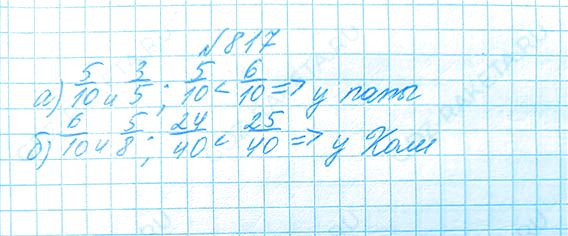 №817
а) 5/10 и 3/5; 5/10 < 6/10 => у папы
б) 6/10 и 5/8; 24/40 < 25/40 => у Коли